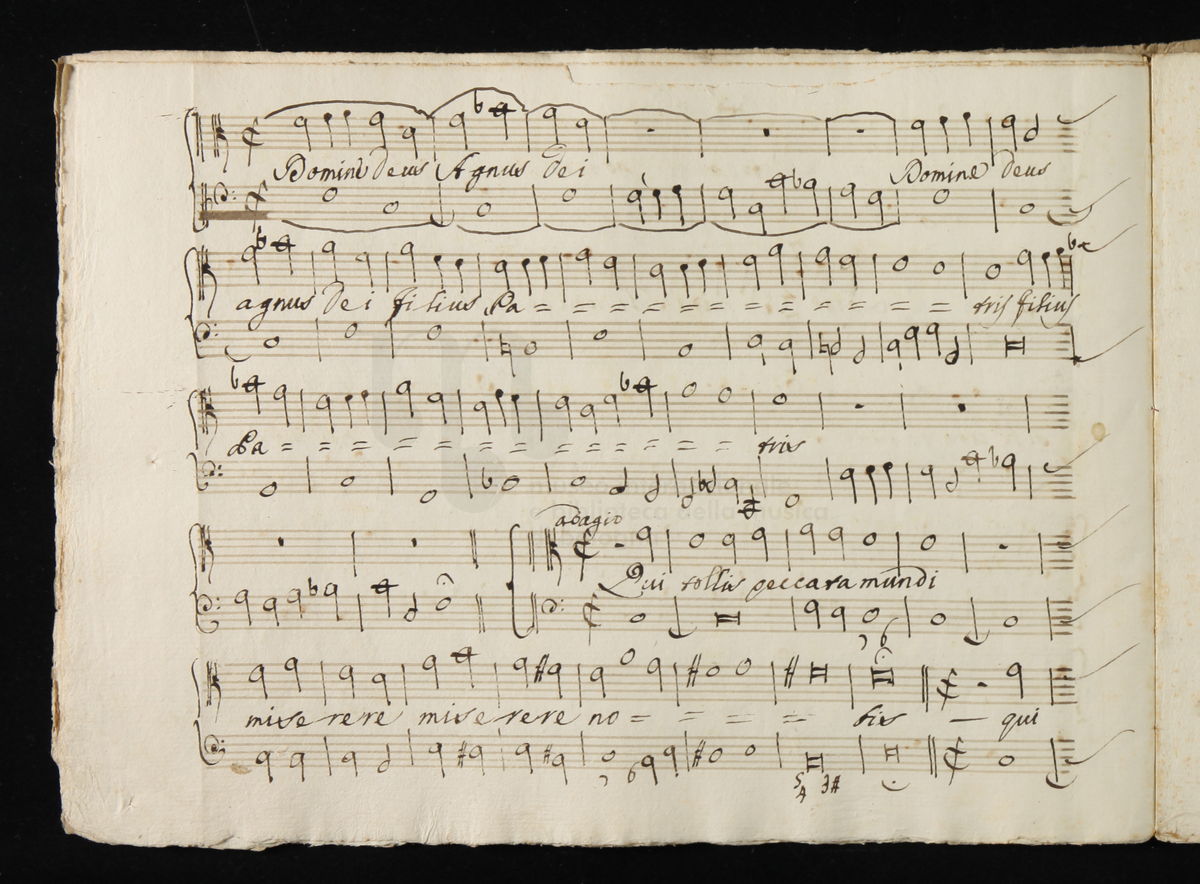 Domine deus Agnus dei Domine deus
agnus dei filius Pa = = = = = = = = = = tris filius
Pa = = = = = = = = tris
adagio
Qui tollis peccata mundi
7 6
miserere miserere no = = = = bis — qui
7 6 5 4 3#